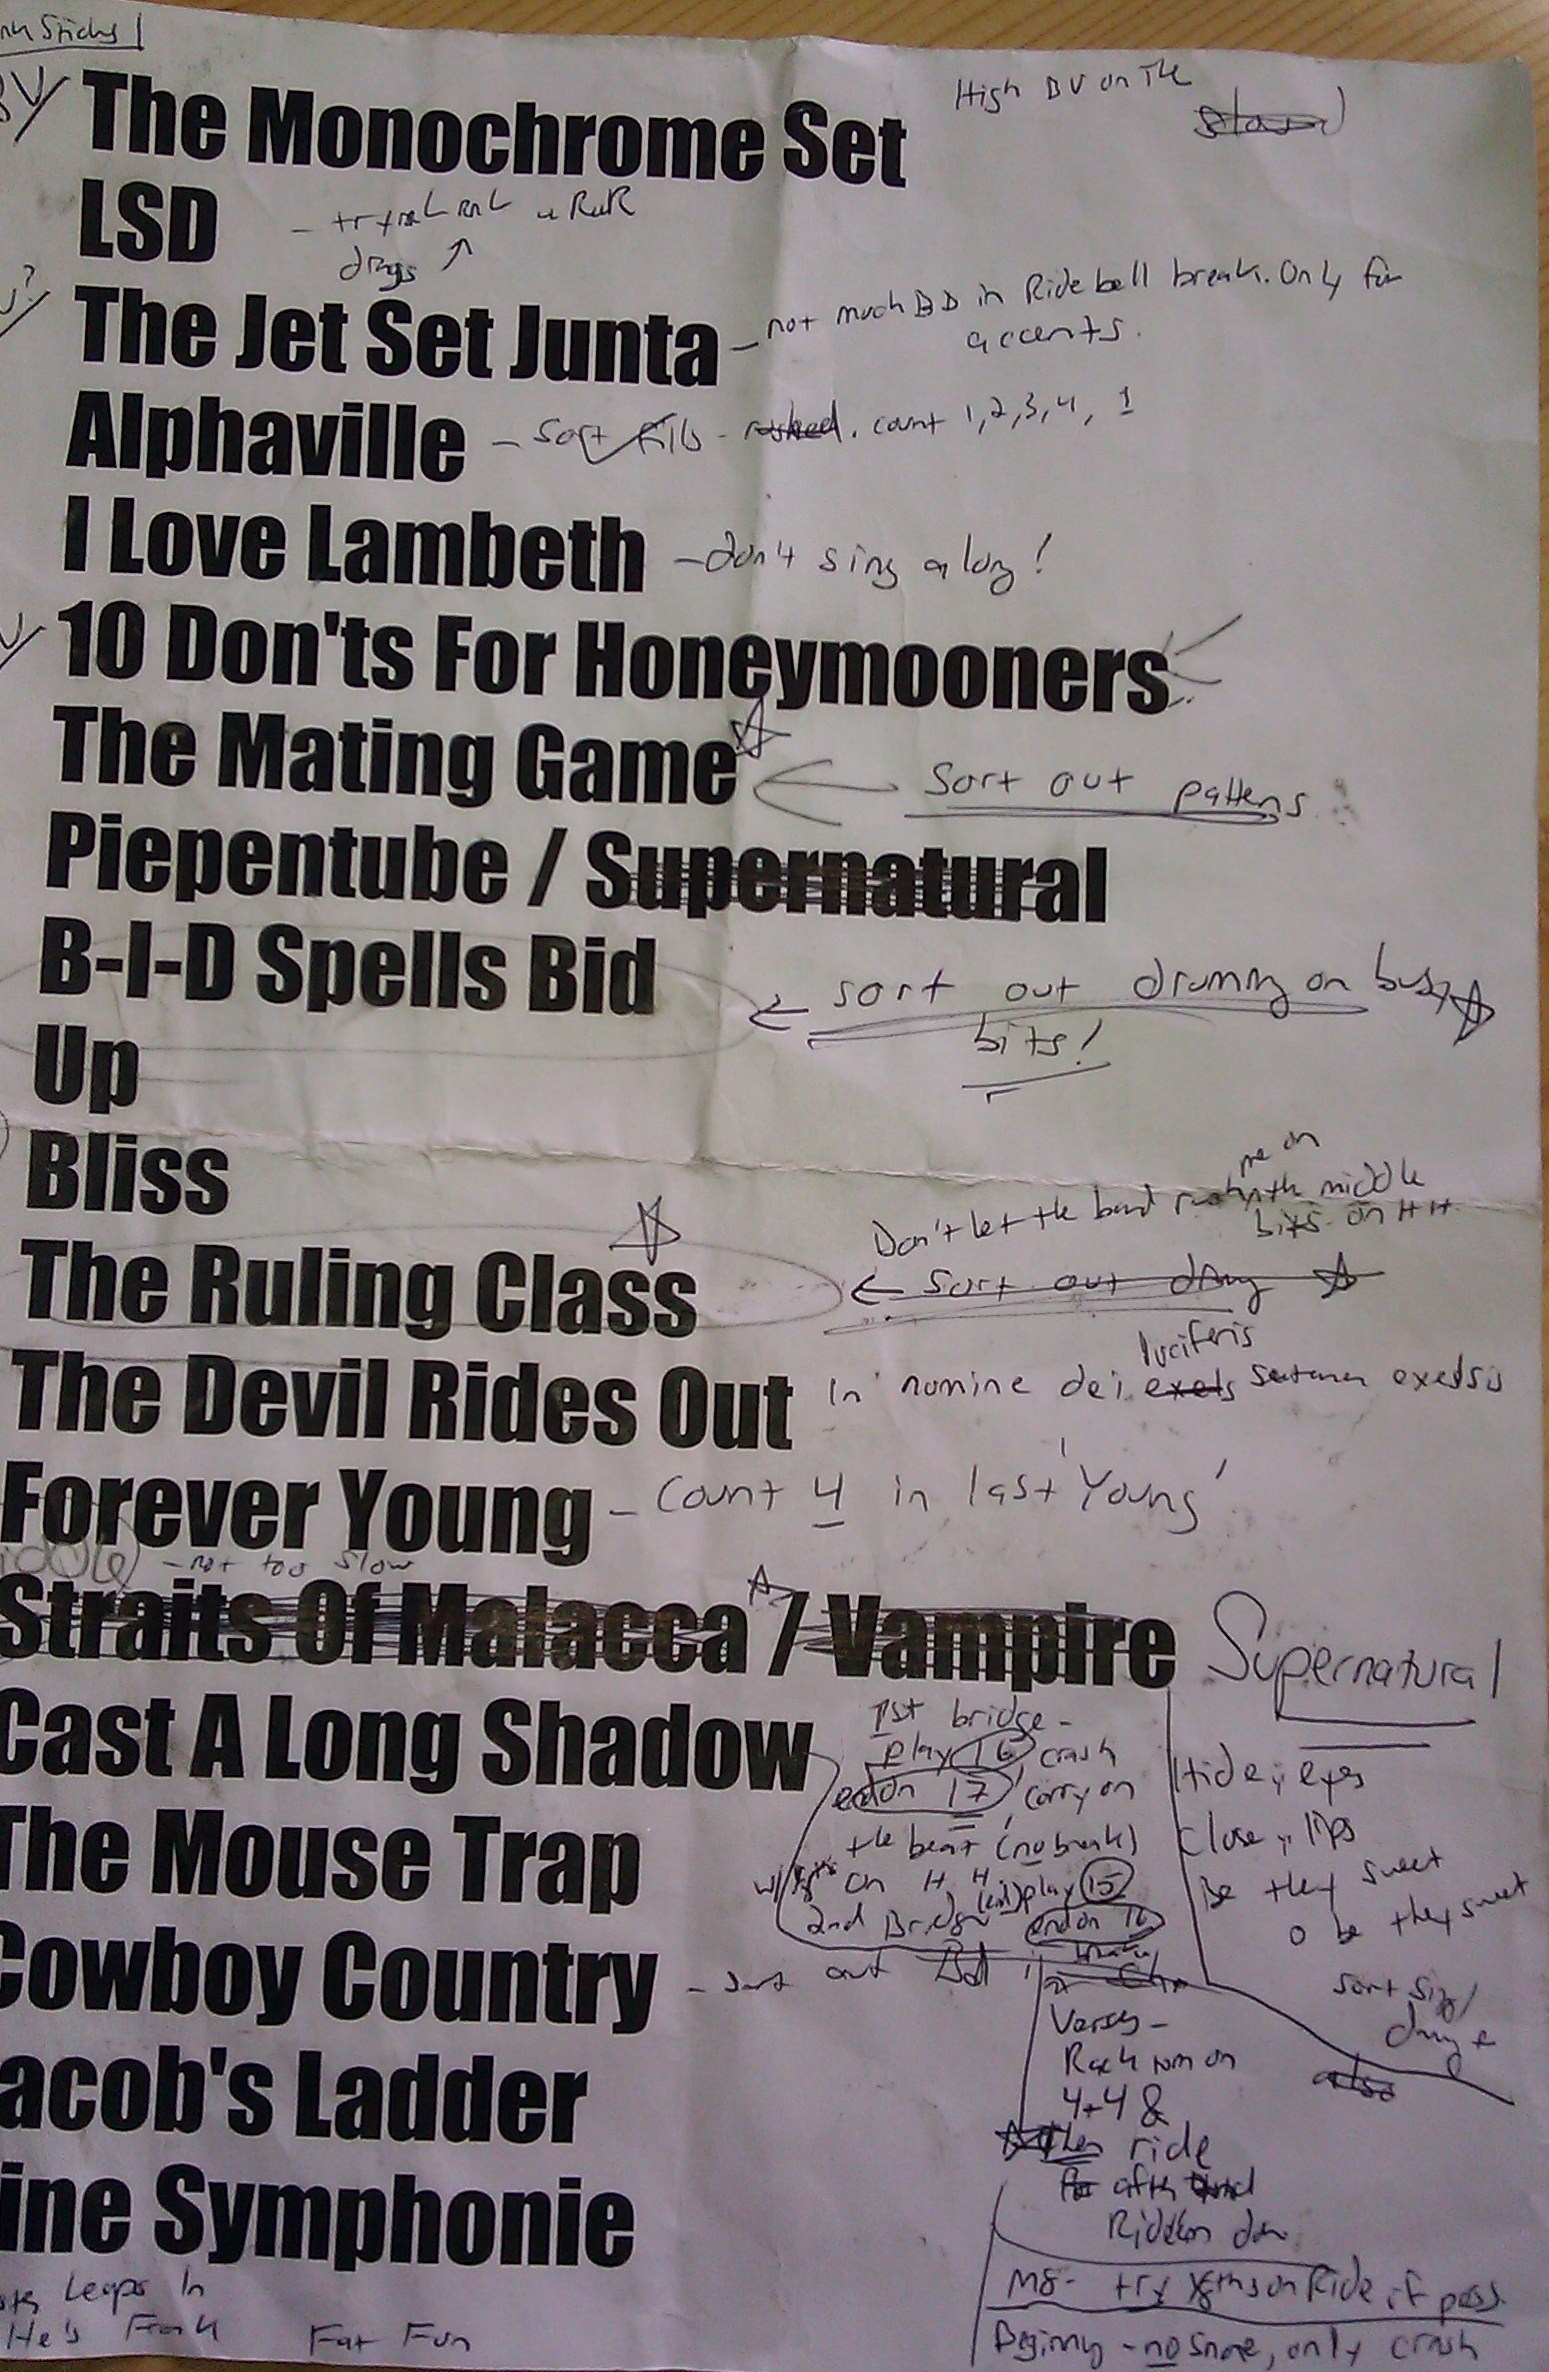 Sticks
The Monochrome Set
High BV on the
LSD
drugs
The Jet Set Junta - not much BD in Ride bell break. Only for
accents.
Alphaville - Sort fills - rushed. count 1, 2, 3, 4, 1
I Love Lambeth - don't sing along!
10 Don'ts For Honeymooners
The Mating Game
Sort out patterns
Piepentube / Supernatural
B-I-D Spells Bid
sort out drumming on busy
bits!
Up
Bliss
me on
Don't let the band rush in the middle
bits on HH
The Ruling Class
sort out
luciferis
The Devil Rides Out in nomine dei
Forever Young - Count 4 in last 'Young'
- not too slow
Straits Of Malacca / Vampire Supernatural
Cast A Long Shadow
1st bridge -
play 16 crash
end on 17, carry on
the beat (no break)
on H H
2nd Bridge (end) play 15
end on 16
Hide, eyes
close, lips
Be they sweet
O be they sweet
sort
also
The Mouse Trap
Cowboy Country - sort out
Verses -
Rack tom on
4+4 &
then ride
after
acob's Ladder
ine Symphonie
Leaps In
He's Frank Fat Fun
M8- try 8ths on Ride if poss.
Beginning - no snare, only crash